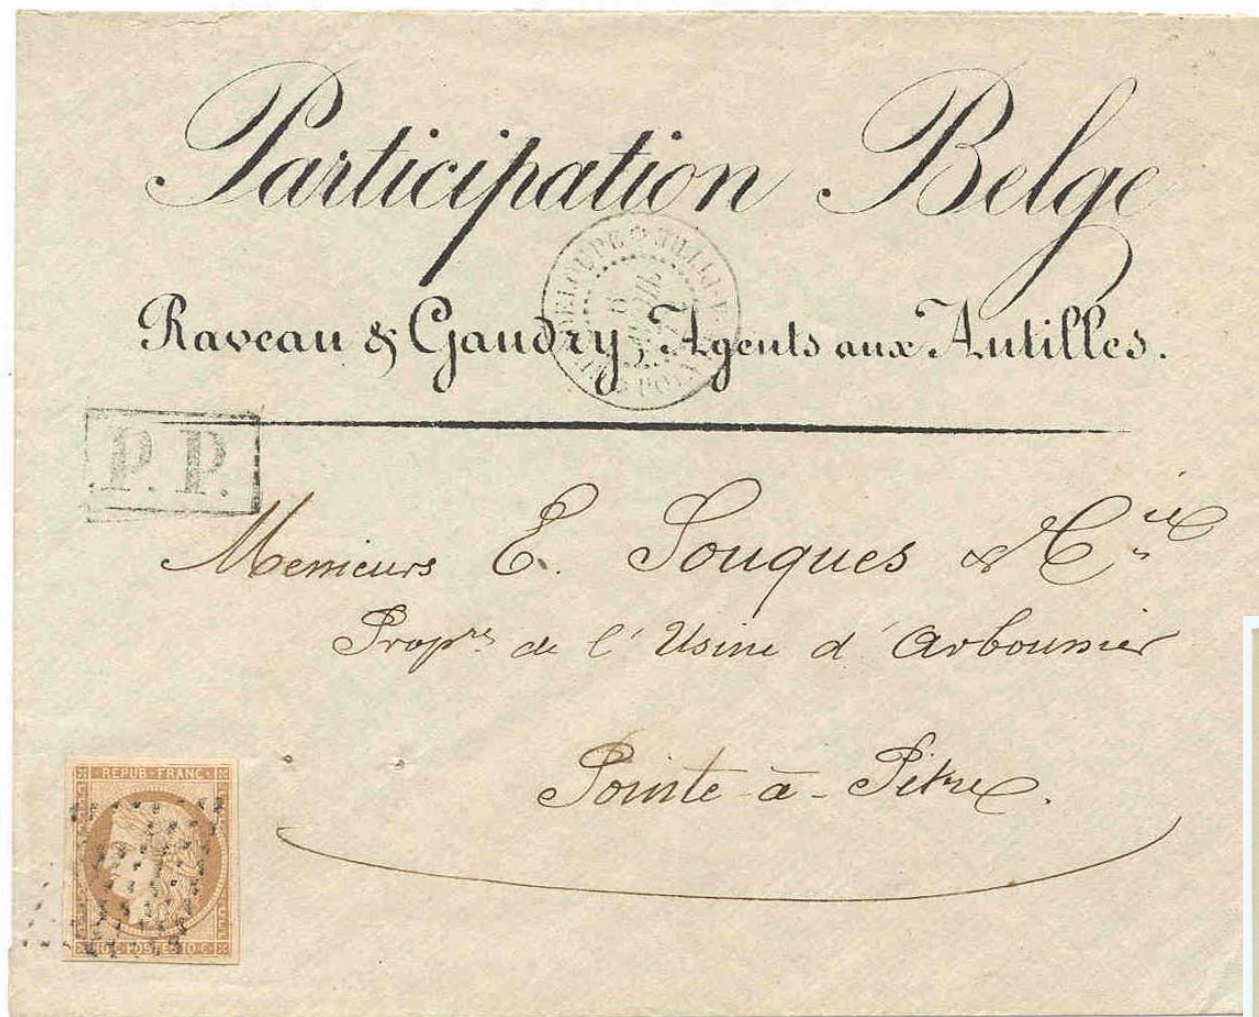 Participation Belge
GUADELOUPE
Raveau & Gaudry, Agents aux Antilles.
P.P.
Messieurs E. Souques & Cie
Proprs de l'Usine d'Arboussier
Pointe-à-Pitre.
REPUB·FRANC·
10·C·POSTES·10·C·